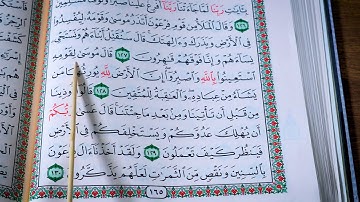 بِـَٔايَٰتِ رَبِّنَا لَمَّا جَآءَتْنَا رَبَّنَآ أَفْرِغْ عَلَيْنَا صَبْرًا وَتَوَفَّنَا مُسْلِمِينَ
١٢٦ وَقَالَ ٱلْمَلَأُ مِن قَوْمِ فِرْعَوْنَ أَتَذَرُ مُوسَىٰ وَقَوْمَهُۥ لِيُفْسِدُوا۟
فِى ٱلْأَرْضِ وَيَذَرَكَ وَءَالِهَتَكَ قَالَ سَنُقَتِّلُ أَبْنَآءَهُمْ وَنَسْتَحْىِۦ
نِسَآءَهُمْ وَإِنَّا فَوْقَهُمْ قَٰهِرُونَ ١٢٧ قَالَ مُوسَىٰ لِقَوْمِهِ
ٱسْتَعِينُوا۟ بِٱللَّهِ وَٱصْبِرُوٓا۟ إِنَّ ٱلْأَرْضَ لِلَّهِ يُورِثُهَا مَن
يَشَآءُ مِنْ عِبَادِهِۦ وَٱلْعَٰقِبَةُ لِلْمُتَّقِينَ ١٢٨ قَالُوٓا۟ أُوذِينَا
مِن قَبْلِ أَن تَأْتِيَنَا وَمِنۢ بَعْدِ مَا جِئْتَنَا قَالَ عَسَىٰ رَبُّكُمْ
أَن يُهْلِكَ عَدُوَّكُمْ وَيَسْتَخْلِفَكُمْ فِى ٱلْأَرْضِ
فَيَنظُرَ كَيْفَ تَعْمَلُونَ ١٢٩ وَلَقَدْ أَخَذْنَآ ءَالَ فِرْعَوْنَ
بِٱلسِّنِينَ وَنَقْصٍ مِّنَ ٱلثَّمَرَٰتِ لَعَلَّهُمْ يَذَّكَّرُونَ ١٣٠
١٦٥